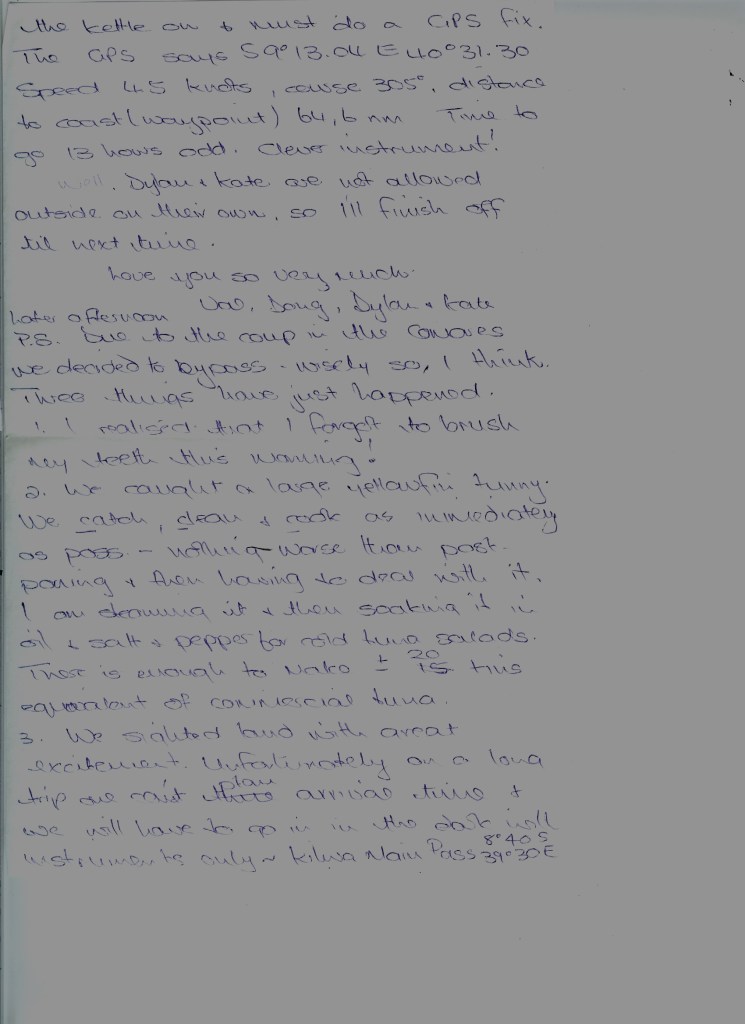 the kettle on & must do a GPS fix.
The GPS says S9°13.04 E40°31.30
Speed 4.5 knots, course 305°, distance
to coast (waypoint) 64,6 nm Time to
go 13 hours odd. Clever instrument!
Well, Dylan & Kate are not allowed
outside on their own, so I'll finish off
til next time.
Love you so very much.
Val, Doug, Dylan & Kate
Later afternoon
P.S. Due to the coup in the Comores
we decided to bypass - wisely so, I think.
Three things have just happened.
1. I realised that I forgot to brush
my teeth this morning!
2. We caught a large yellowfin tunny.
We catch, clean & cook as immediately
as poss. - nothing worse than post-
poning & then having to deal with it.
I am steaming it & then soaking it in
oil & salt & pepper for cold tuna salads.
There is enough to make ± 20 tins
equivalent of commercial tuna.
3. We sighted land with great
excitement. Unfortunately on a long
trip one can't plan arrival time &
we will have to go in in the dark with
instruments only ~ Kilwa Main Pass 8°40S
39°30E